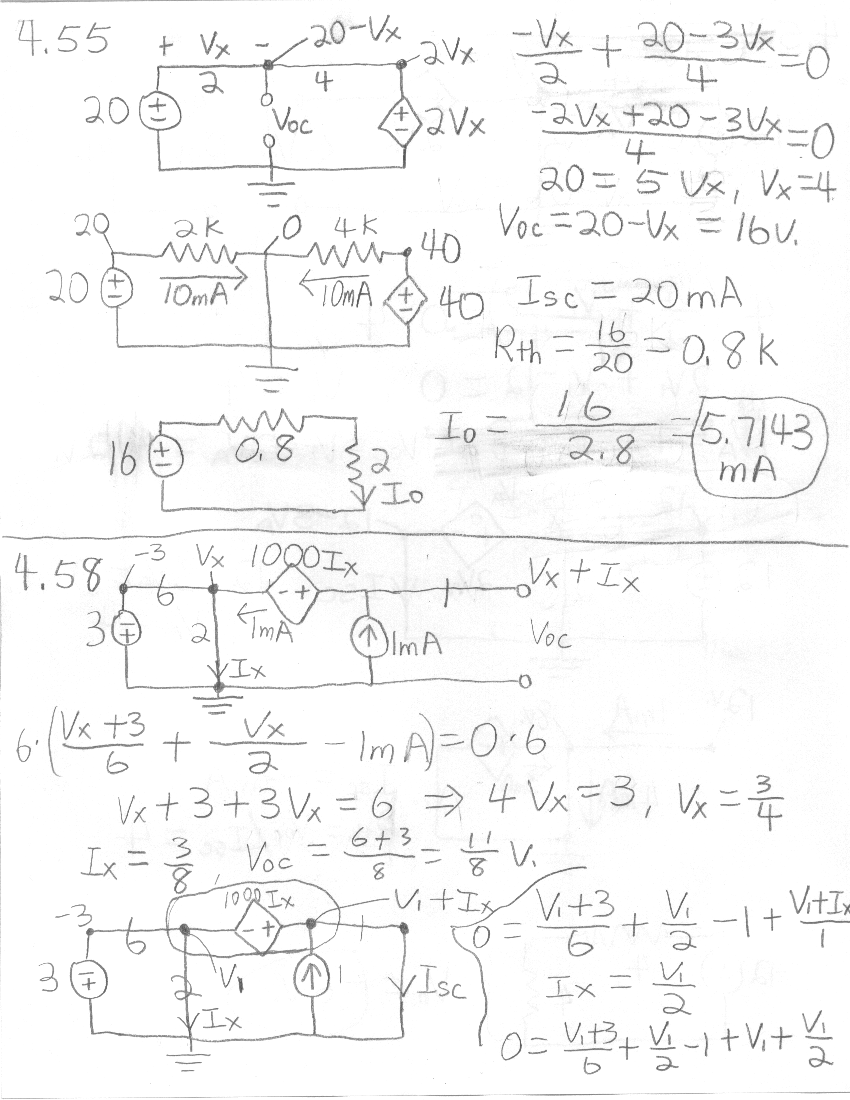 4.55
+ Vx - 20-Vx 2Vx
2 4
20 ± Voc ± 2Vx
-Vx/2 + 20-3Vx/4 = 0
-2Vx + 20 - 3Vx/4 = 0
20 = 5 Vx, Vx = 4
Voc = 20 - Vx = 16 V.
20 2K 0 4K 40
20 ± 10mA 10mA ± 40
Isc = 20 mA
Rth = 16/20 = 0.8 K
16 ± 0.8 2 Io
Io = 16/2.8 = 5.7143 mA
4.58
-3 Vx 1000Ix Vx + Ix
6 - + 1
3 ∓ 2 1mA 1mA Voc
Ix
6·(Vx+3/6 + Vx/2 - 1mA) = 0·6
Vx + 3 + 3Vx = 6 ⇒ 4 Vx = 3, Vx = 3/4
Ix = 3/8, Voc = 6+3/8 = 11/8 V.
-3 1000Ix V1 + Ix
6 - + 1
3 ∓ 2 V1 1 Isc
Ix
0 = V1+3/6 + V1/2 - 1 + V1+Ix/1
Ix = V1/2
0 = V1+3/6 + V1/2 - 1 + V1 + V1/2